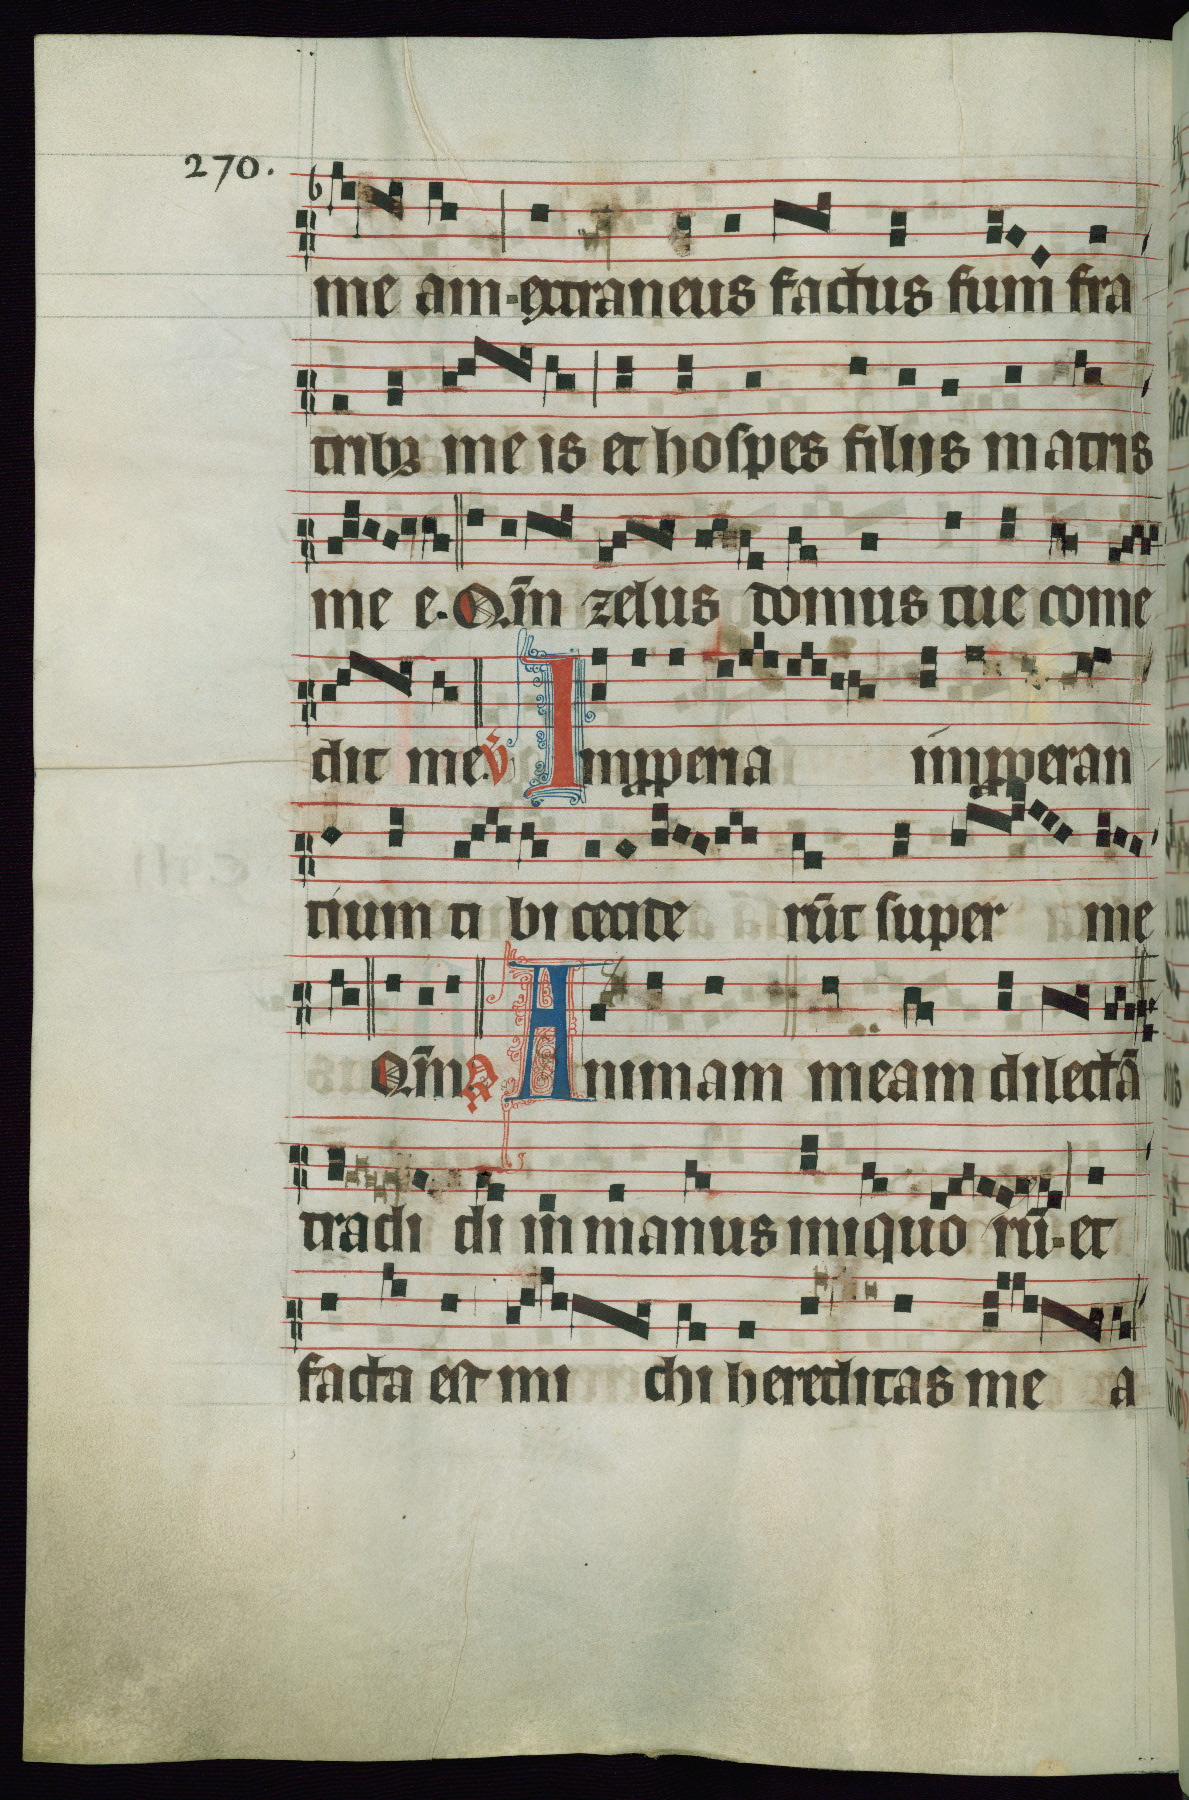 270.
me am·extraneus factus sum fra
tribꝫ me is et hospes filijs matris
me e. Qm̅ zelus domus tue come
dit me. V̅ Improperia improperan
tium ti bi cecide rūt super me
Qm̅ R̅ Animam meam dilectā
tradi di in manus iniquo rū·et
facta est mi chi hereditas me a